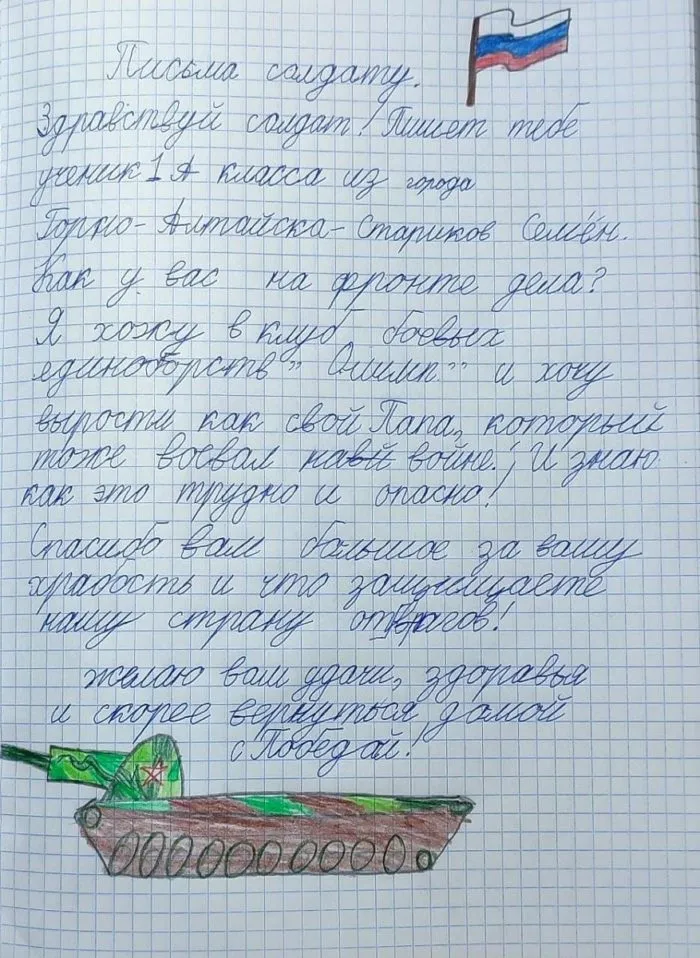 Письма солдату.
Здравствуй солдат! Пишет тебе
ученик 1 А класса из города
Горно-Алтайска-Стариков Семён.
Как у вас на фронте дела?
Я хожу в клуб боевых
единоборств "Олимп" и хочу
вырости как свой Папа, который
тоже воевал войне! И знаю
как это трудно и опасно!
Спасибо вам большое за вашу
храбость и что защищаете
нашу страну от врагов!
желаю вам удачи, здоровья
и скорее вернуться домой
с Победай!